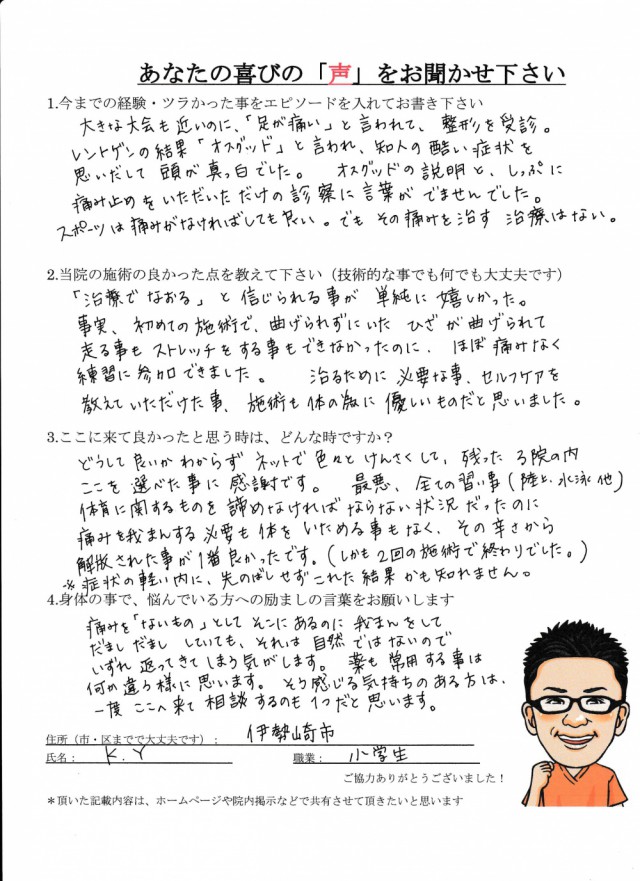 あなたの喜びの「声」をお聞かせ下さい
1.今までの経験・ツラかった事をエピソードを入れてお書き下さい
大きな大会も近いのに、「足が痛い」と言われて、整形を受診。
レントゲンの結果「オスグッド」と言われ、知人の酷い症状を
思いだして頭が真っ白でした。 オスグッドの説明と、しっぷに
痛み止めをいただいただけの診察に言葉がでませんでした。
スポーツは痛みがなければしても良い。でもその痛みを治す治療はない。
2.当院の施術の良かった点を教えて下さい（技術的な事でも何でも大丈夫です）
「治療でなおる」と信じられる事が単純に嬉しかった。
事実、初めての施術で、曲げられずにいたひざが曲げられて
走る事もストレッチをする事もできなかったのに、ほぼ痛みなく
練習に参加できました。 治るために必要な事、セルフケアを
教えていただけた事、施術も体の為に優しいものだと思いました。
3.ここに来て良かったと思う時は、どんな時ですか？
どうして良いかわからずネットで色々とけんさくして、残った3院の内
ここを選べた事に感謝です。 最悪、全ての習い事（陸上、水泳他）
体育に関するものを諦めなければならない状況だったのに
痛みを我まんする必要も体をいためる事もなく、その辛さから
解放された事が1番良かったです。（しかも2回の施術で終わりでした。）
※症状の軽い内に、先のばしせずこれた結果かも知れません。
4.身体の事で、悩んでいる方への励ましの言葉をお願いします
痛みを「ないもの」としてそこにあるのに我まんをして
だましだまししていても、それは自然ではないので
いずれ返ってきてしまう気がします。 薬も常用する事は
何か違う様に思います。そう感じる気持ちのある方は、
一度ここへ来て相談するのも1つだと思います。
住所（市・区までで大丈夫です）： 伊勢崎市
氏名： K.Y 職業： 小学生
ご協力ありがとうございました！
＊頂いた記載内容は、ホームページや院内掲示などで共有させて頂きたいと思います